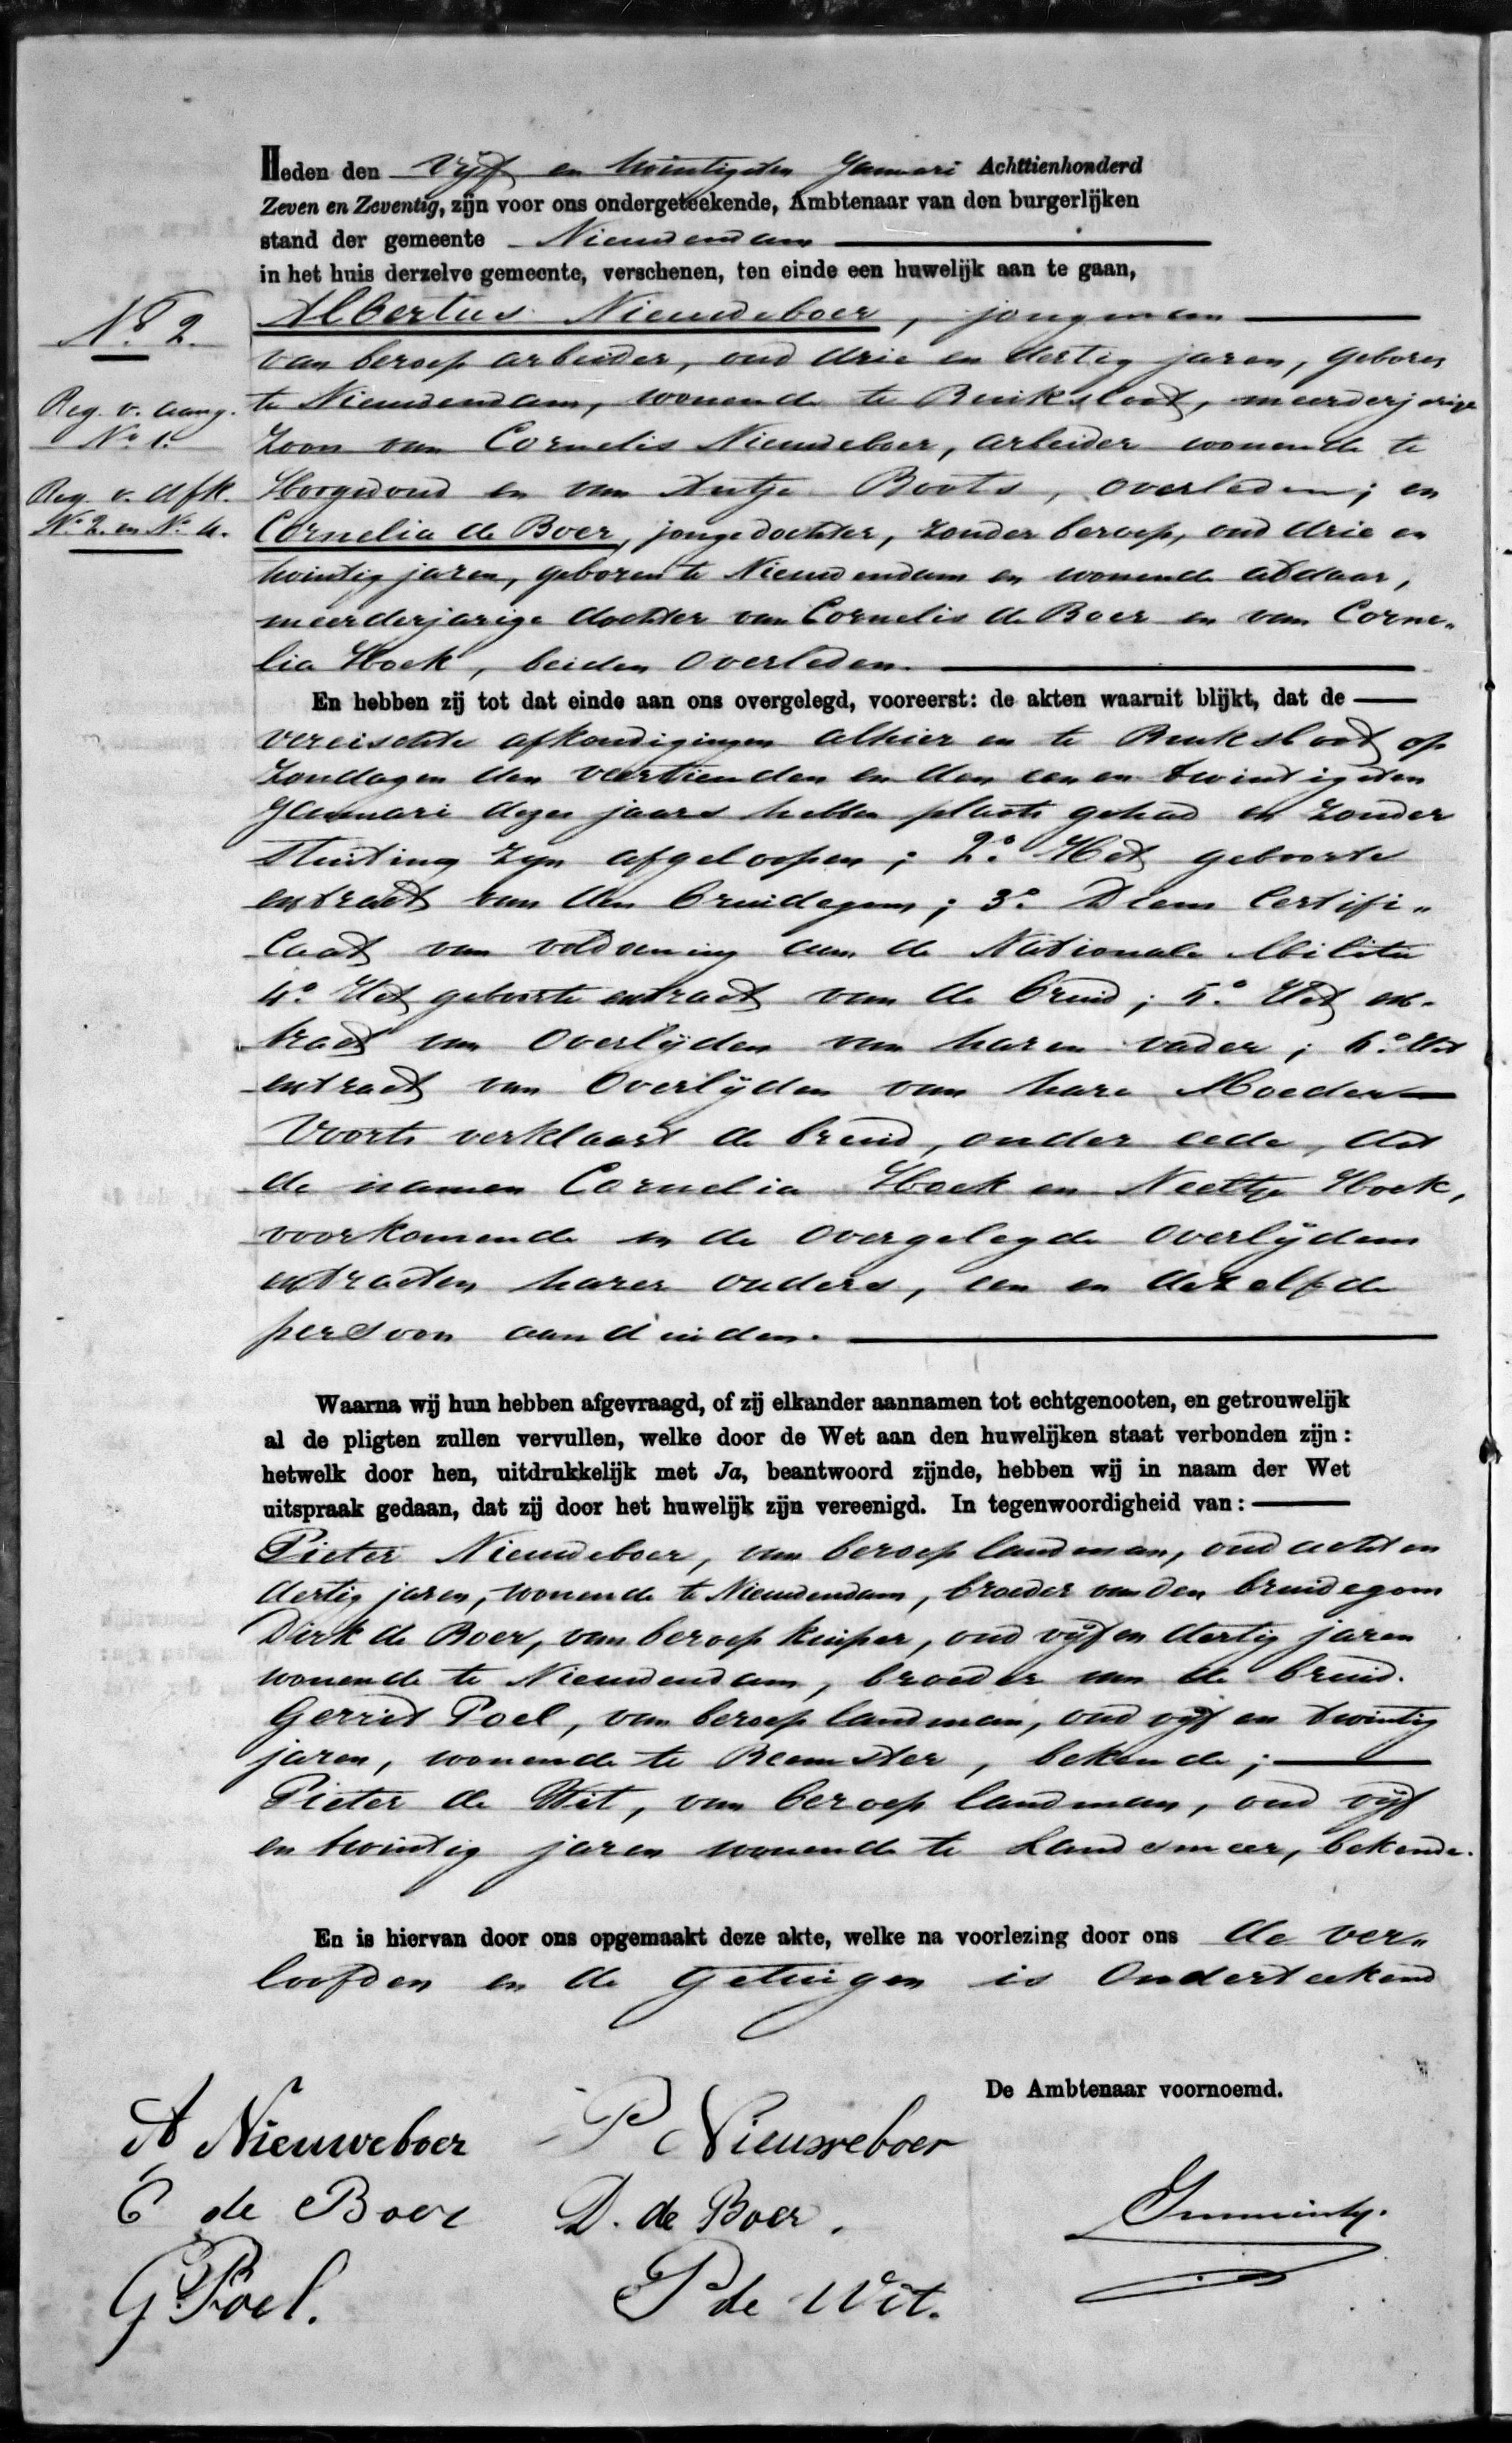 Heden den Vijf en twintigsten Januari Achttienhonderd
Zeven en Zeventig, zijn voor ons ondergeteekende, Ambtenaar van den burgerlijken
stand der gemeente Nieuwendam
in het huis derzelve gemeente, verschenen, ten einde een huwelijk aan te gaan,
No 2.
Albertus Nieuweboer, jongman
van beroep arbeider, oud drie en dertig jaren, geboren
Reg. v. aang.
te Nieuwendam, wonende te Buiksloot, meerderjarige
No 1.
zoon van Cornelis Nieuweboer, arbeider wonende te
Reg. v. Afk.
Hoogwoud en van Antje Boots, overleden; en
No 2. en No 4.
Cornelia de Boer, jongedochter, zonder beroep, oud drie en
twintig jaren, geboren te Nieuwendam en wonende aldaar,
meerderjarige dochter van Cornelis de Boer en van Corne„
lia Hoek, beiden overleden.
En hebben zij tot dat einde aan ons overgelegd, vooreerst: de akten waaruit blijkt, dat de
vereischte afkondigingen alhier en te Buiksloot op
Zondagen den veertienden en den een en twintigsten
Januari dezes jaars hebben plaats gehad en zonder
stuiting zijn afgeloopen; 2o. Het geboorte
extract van den bruidegom; 3o. Diens Certifi„
caat van voldoening aan de Nationale Militie
4o. Het geboorte extract van de bruid; 5o. Het ex-
tract van overlijden van haren vader; 6o. Het
extract van overlijden van hare Moeder
Voorts verklaart de bruid, onder eede, dat
de namen Cornelia Hoek en Neeltje Hoek,
voorkomende in de overgelegde overlijdens
extracten harer ouders, een en dezelfde
persoon aanduiden.
Waarna wij hun hebben afgevraagd, of zij elkander aannamen tot echtgenooten, en getrouwelijk
al de pligten zullen vervullen, welke door de Wet aan den huwelijken staat verbonden zijn:
hetwelk door hen, uitdrukkelijk met Ja, beantwoord zijnde, hebben wij in naam der Wet
uitspraak gedaan, dat zij door het huwelijk zijn vereenigd. In tegenwoordigheid van:
Pieter Nieuweboer, van beroep landman, oud acht en
dertig jaren, wonende te Nieuwendam, broeder van den bruidegom
Dirk de Boer, van beroep kuiper, oud vijf en dertig jaren
wonende te Nieuwendam, broeder van de bruid.
Gerrit Poel, van beroep landman, oud vijf en twintig
jaren, wonende te Beemster, bekende;
Pieter de Wit, van beroep landman, oud vijf
en twintig jaren wonende te Landsmeer, bekende.
En is hiervan door ons opgemaakt deze akte, welke na voorlezing door ons de ver„
loofden en de getuigen is onderteekend
De Ambtenaar voornoemd.
A Nieuweboer P Nieuweboer
C de Boer D. de Boer.
G. Poel. P de Wit.